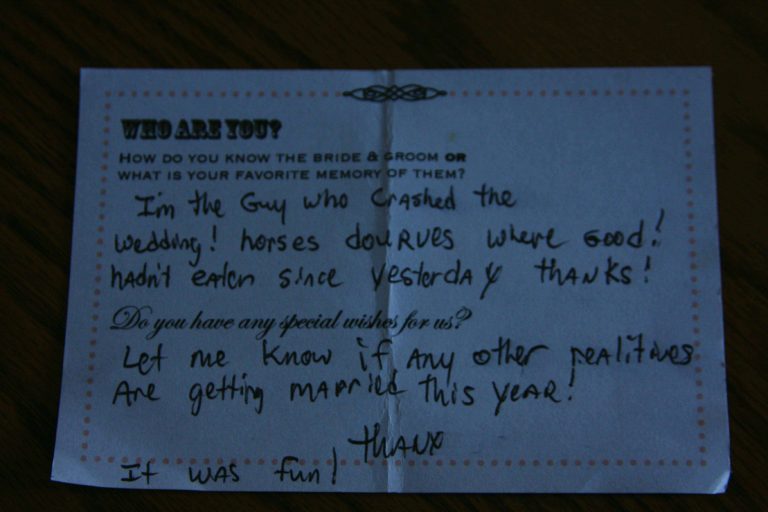 WHO ARE YOU?
HOW DO YOU KNOW THE BRIDE & GROOM OR
WHAT IS YOUR FAVORITE MEMORY OF THEM?
I'm the Guy who crashed the
wedding! horses douRves where Good!
hadn't eaten since yesterday thanks!
Do you have any special wishes for us?
Let me know if any other realitives
Are getting married this year!
thanx
It was fun!